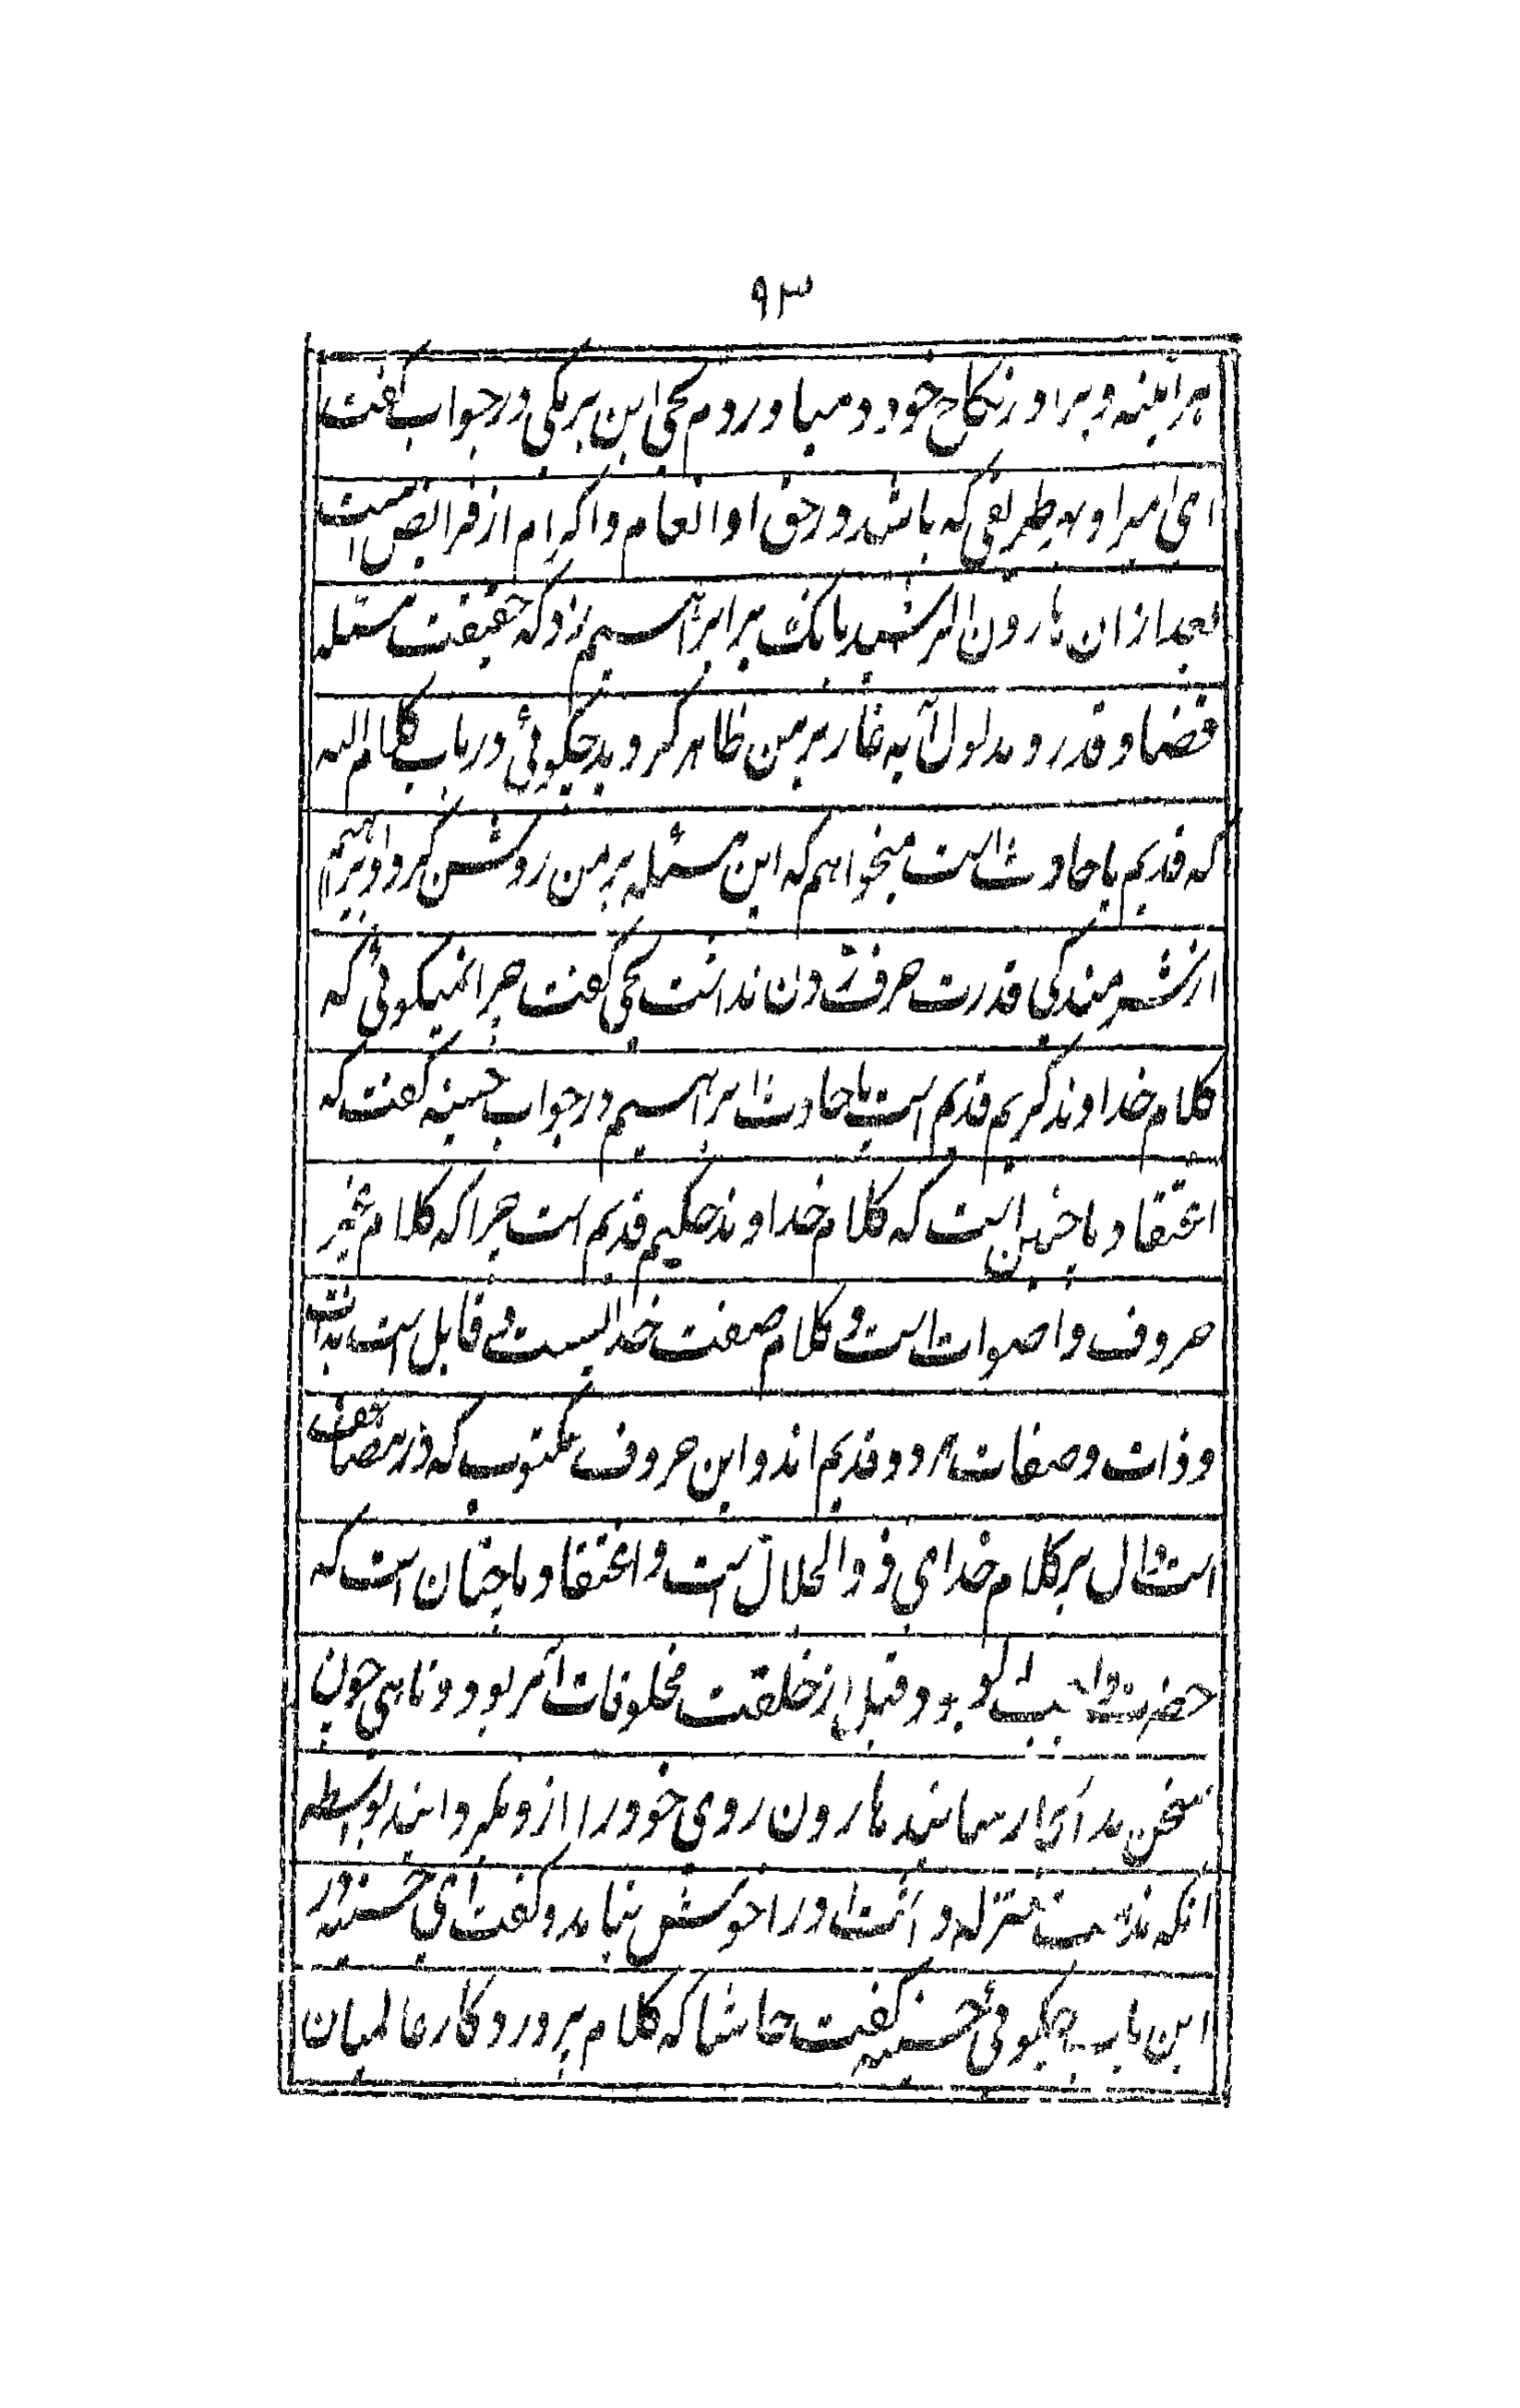 ۹۳
هرآینه ویرا در نکاح خود در میاوردم یحیی ابن برمکی در جواب گفت
ای امیر او بهر طریقی که باشد در حق او انعام و اکرام از فرایض است
بعد ازان هارون الرشید بانک بر ابراهیم زد که حقیقت مسئله
قضا و قدر و مدلول آیه غار بر من ظاهر گردید چگوئی در باب کلام الله
که قدیم یا حادث است میخواهم که این مسئله بر من روشن گردد ابراهیم
از شرمندگی قدرت حرف زدن نداشت یحیی گفت چرا نمیگوئی که
کلام خداوند کریم قدیم است یا حادث ابراهیم در جواب حسنیه گفت که
اعتقاد ما چنین است که کلام خداوند حکیم قدیم است چرا که کلام غیر
حروف و اصوات است و کلام صفت خدایست و قابل است بذات
و ذات و صفات هر دو قدیم اند و این حروف مکتوب که در مصاحف
است دال بر کلام خدای ذوالجلال است و اعتقاد ما چنان است که
حضرت بود و قبل از خلقت مخلوقات آمر بود و ناهی چون
سخن بدانجا رسانید هارون روی خود را ازو بگردانید بواسطه
آنکه مذهب معتزله داشت او را خوش نیامد و گفت ای حسنیه در
این باب چگوئی حسنیه گفت حاشا که کلام پروردکار عالمیان